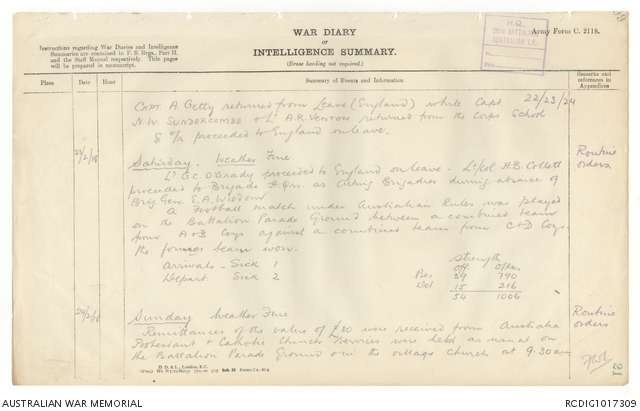 WAR DIARY
OR
INTELLIGENCE SUMMARY.
(Erase heading not required.)
Army Form C. 2118.
Instructions regarding War Diaries and Intelligence
Summaries are contained in F. S. Regs., Part II.
and the Staff Manual respectively. Title pages
will be prepared in manuscript.
H.Q.
Place Date Hour Summary of Events and Information Remarks and references to Appendices
Capt. A Getty returned from Leave (England) while Capt 22/23/24
N.W. Sundercombe & Lt A.R. returned from the Corps School
& proceeded to England on leave.
Saturday. Weather Fine Routine
Lt G.C. O'Grady proceeded to England on leave. Lt/Col H.B. Collett orders
proceeded to Brigade Hqrs. as Acting Brigadier during absence of
Brig Gen E.A. Wisdom
A Football match under Australian Rules was played
on the Battalion Parade Ground between a combined team
from A & B Coys against a combined team from C & D Coys.
the former team won.
Strength
Off. O/Ra.
Arrivals - Sick 1
Depart Sick 2
39 790
Det 15 216
54 1006
Sunday Weather Fine Routine
Remittances of the value of £20 were received from Australia orders
Protestant & Catholic Church Services were held as usual on
the Battalion Parade Ground & in the village Church at 9.30 am
D. D. & L., London, E.C.
AUSTRALIAN WAR MEMORIAL
RCDIG1017309